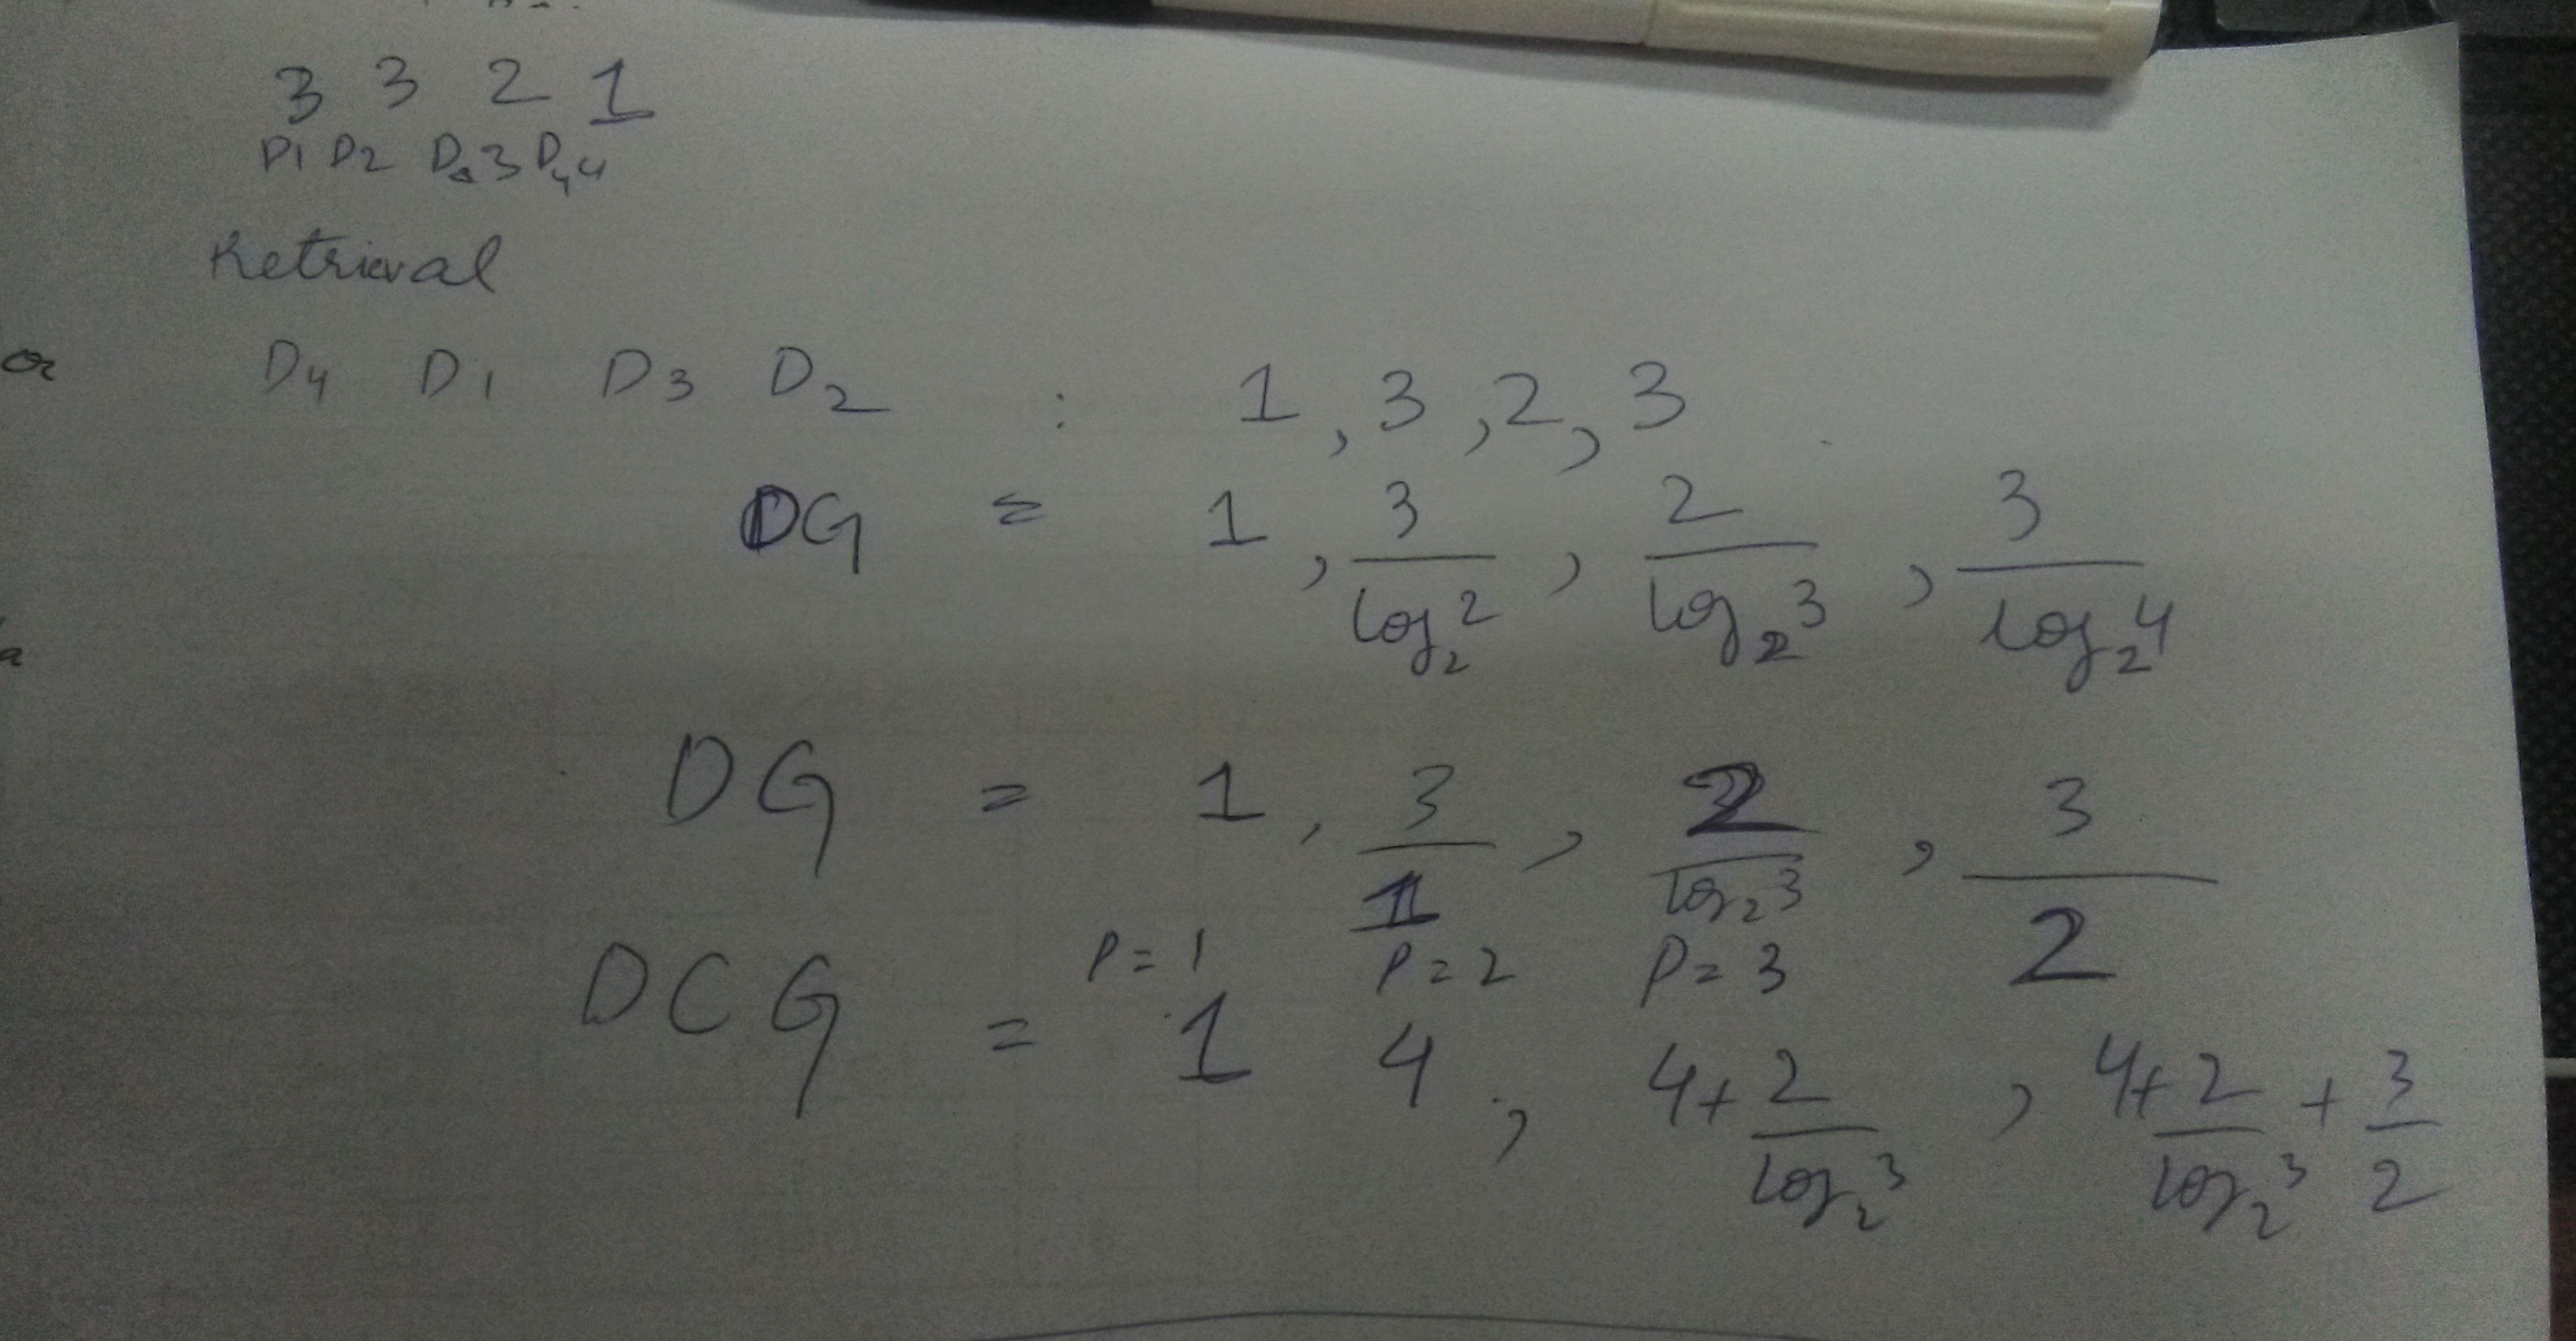 3 3 2 1
D1 D2 D3 D4
Retrieval
or D4 D1 D3 D2 : 1, 3, 2, 3
DG = 1, 3/log₂2, 2/log₂3, 3/log₂4
DG = 1, 3/1, 2/log₂3, 3/2
P=1 P=2 P=3
DCG = 1 4, 4+2/log₂3, 4+2/log₂3+3/2